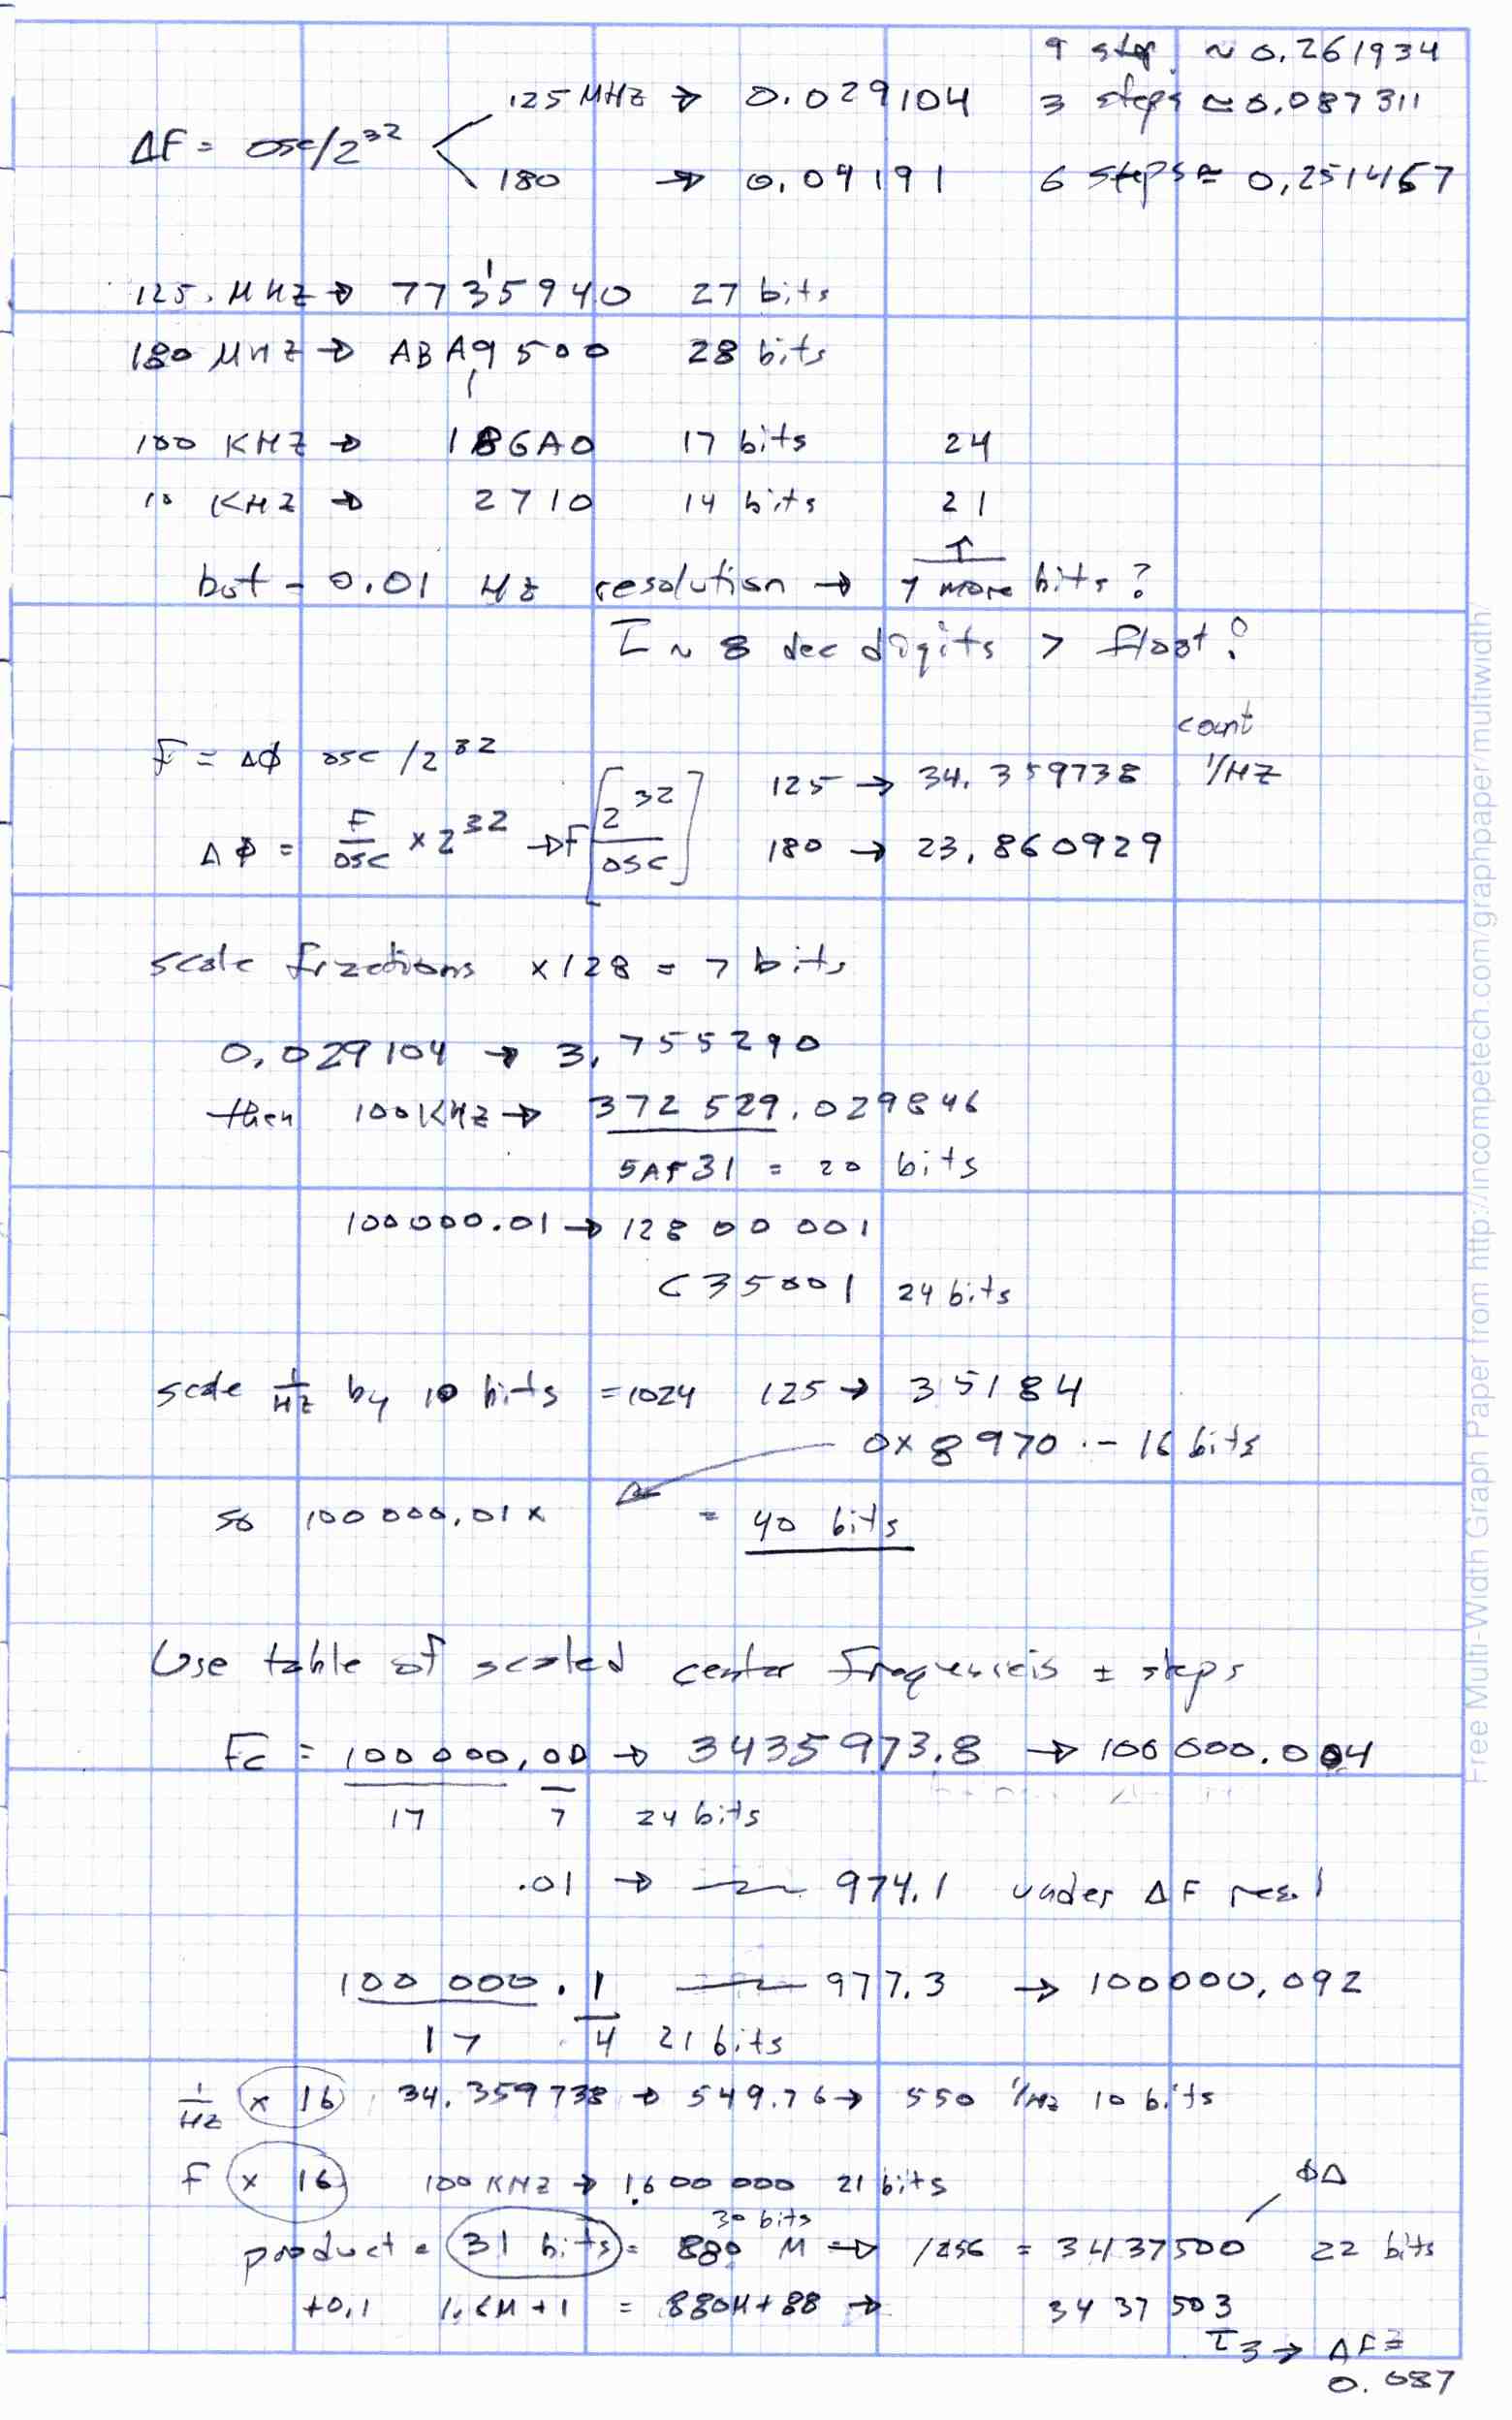 9 step ~ 0.261934
125 MHz → 0.029104 3 steps ≈ 0.087311
ΔF = osc/2^32
180 → 0.04191 6 steps ≈ 0.251467
125. MHz → 7735940 27 bits
180 MHz → ABA9500 28 bits
100 KHz → 186A0 17 bits 24
10 KHz → 2710 14 bits 21
but - 0.01 Hz resolution → 7 more bits?
I ~ 8 dec digits > float?
count
F = Δϕ osc /2^32 125 → 34.359738 1/Hz
Δϕ = F/osc × 2^32 → F [2^32/osc] 180 → 23.860929
scale fractions ×128 = 7 bits
0.029104 → 3.755290
then 100KHz → 372 529.029846
5AF31 = 20 bits
100000.01 → 128 00 001
C35001 24 bits
scale 1/Hz by 10 bits = 1024 125 → 35184
0x8970 - 16 bits
so 100 000.01 × = 40 bits
Use table of scaled center frequencies ± steps
Fc = 100 000.00 → 3435973.8 → 100 000.004
17 7 24 bits
.01 → 974.1 under ΔF res!
100 000.1 977.3 → 100000.092
17 4 21 bits
1/Hz × 16 34.359738 → 549.76 → 550 1/Hz 10 bits
F × 16 100 KHz → 1.600 000 21 bits ϕΔ
30 bits
product = 31 bits = 880 M → /256 = 3437500 22 bits
+0.1 1.6M + 1 = 880M + 88 → 3437503
I 3 → ΔF =
0.087
Free Multi-Width Graph Paper from http://incompetech.com/graphpaper/multiwidth/